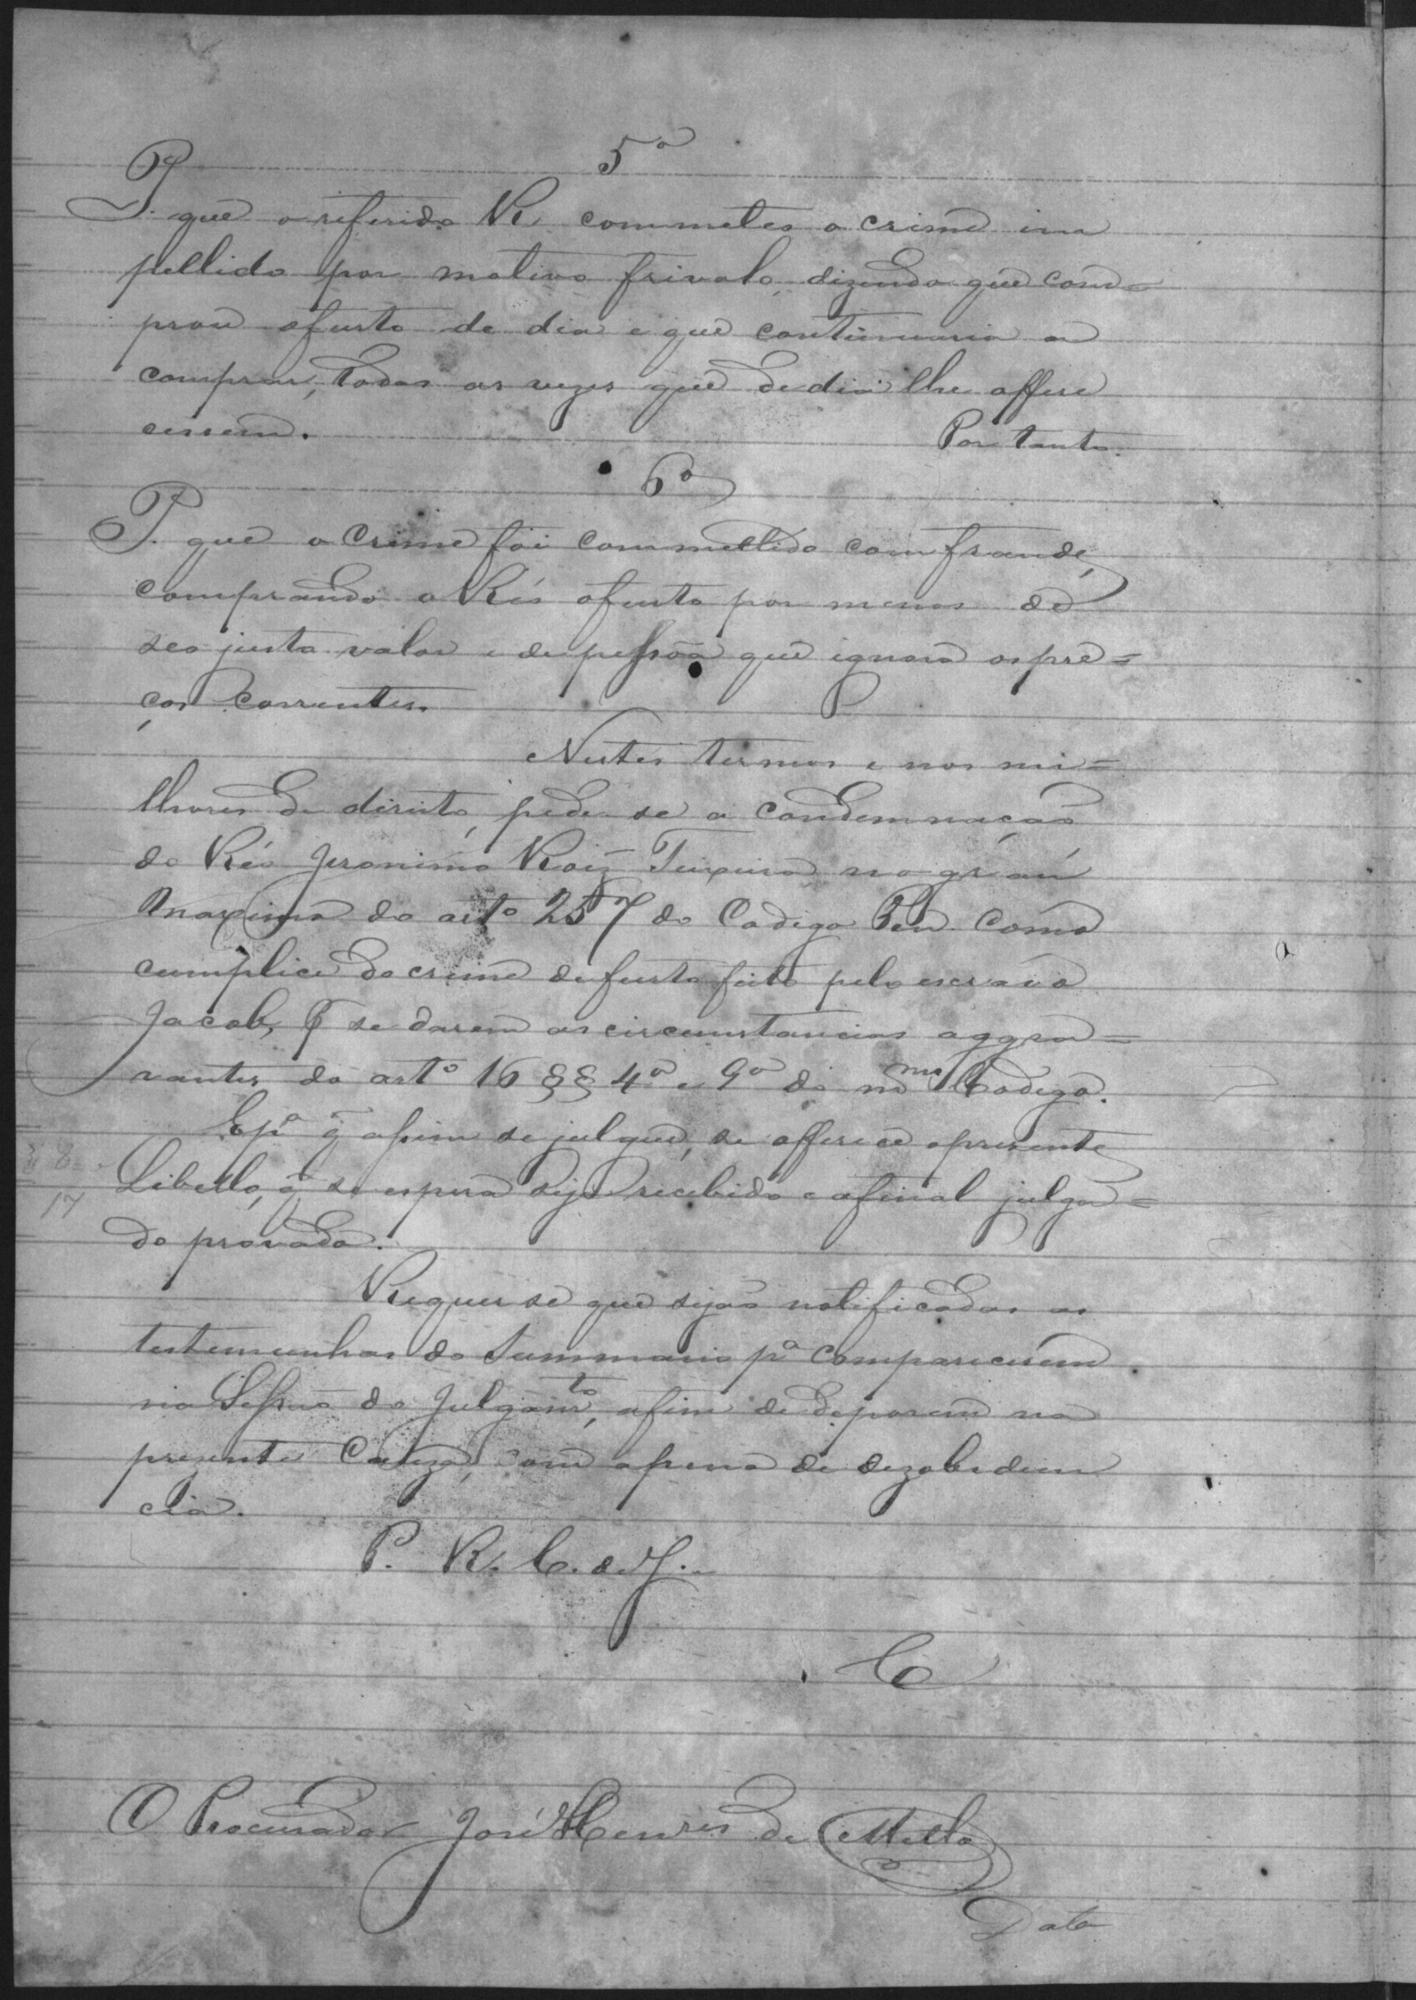 5º
P. que o referido R. commetteo o crime im
pellido por motivo frivolo, dizendo que com=
prou o furto de dia e que continuaria a
comprar, todas as vezes que de dia lhe offere
cessem.
Por tanto.
6º
P. que o crime foi commettido com fraude,
comprando o Réo o furto por menos de
seo justo valor e de pessoa que ignora os pre=
ços correntes.
Nestes termos e nos mi=
lhores de direito, pede-se a condemnação
do Réo Jeronimo Roiz Teixeira no gráu
maximo do artº 257 do Codigo Pen. como
cumplice do crime de furto feito pelo escravo
Jacob, p se darem as circumstancias aggra=
vantes do artº 16 §§ 4º e 9º do mmo Codigo.
E pª q̃ assim se julgue, se offerece o presente
Libello, q̃ se espera seja recebido e afinal julga=
do provado.
Requer se que sejão notificadas as
testemunhas do Summario pª comparecerem
na Sessão do Julgamto, afim de deporem na
prezente Cauza, com a pena de dezobedien
cia.
P. R. C. de J.
C
O Procurador José Henres de Mello
Data